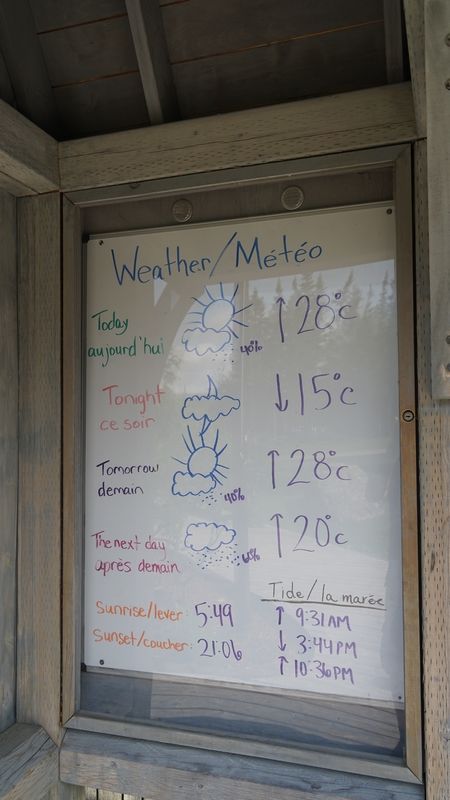 Weather/Météo
Today
aujourd'hui
40%
↑ 28°c
Tonight
ce soir
↓ 15°c
Tomorrow
demain
40%
↑ 28°c
The next day
après demain
60%
↑ 20°c
Sunrise/lever: 5:49
Sunset/coucher: 21:06
Tide/la marée
↑ 9:31AM
↓ 3:44PM
↑ 10:36PM